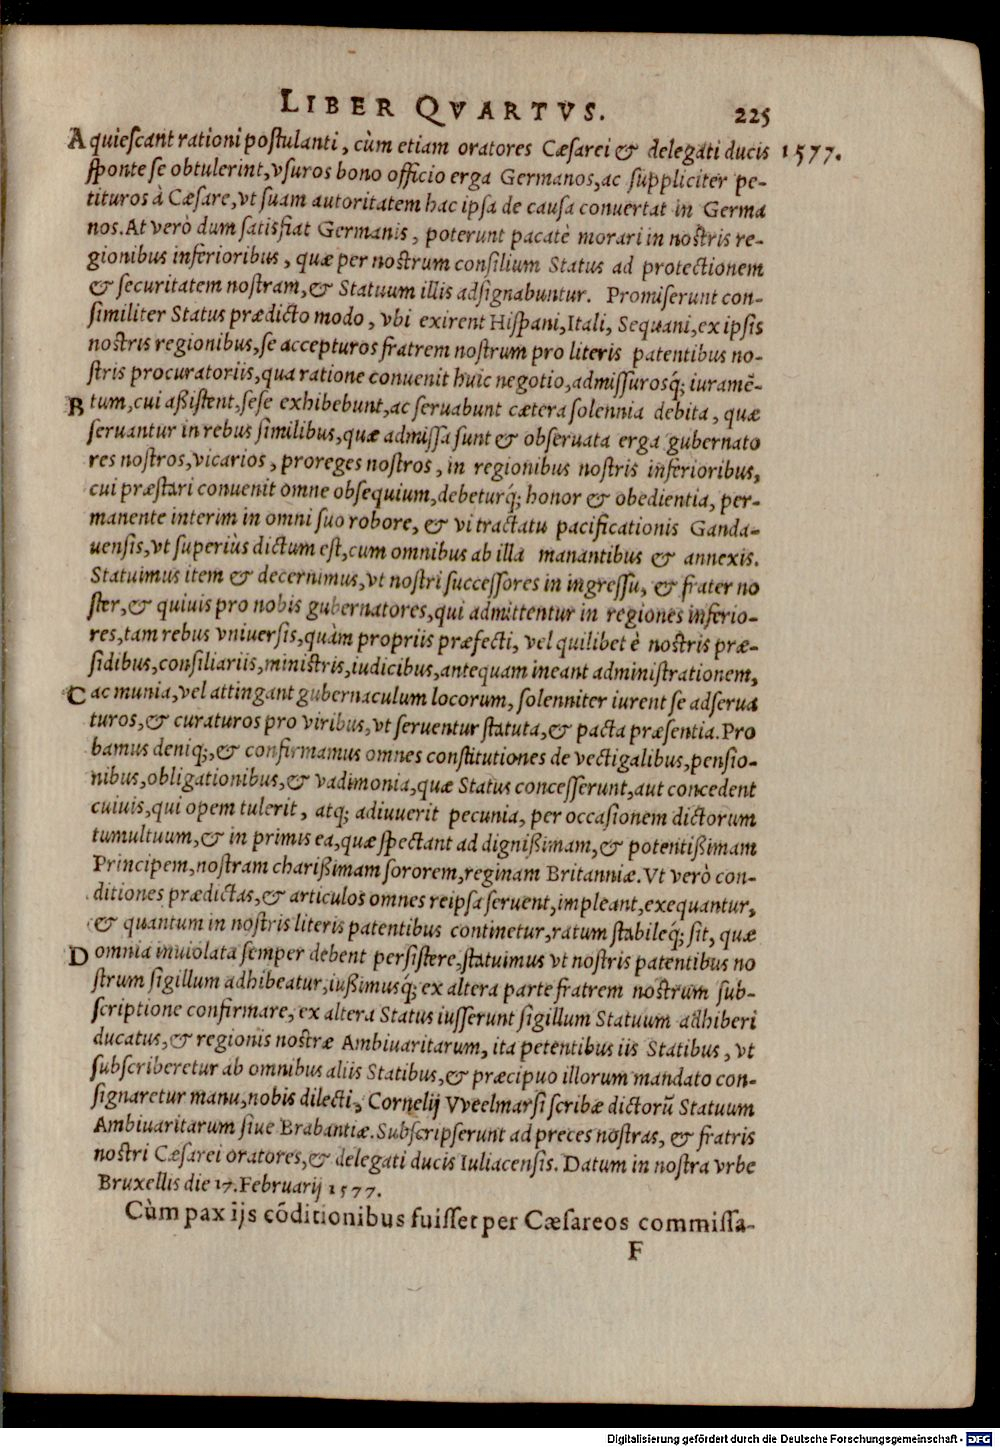 LIBER QVARTVS. 225
A quiescant rationi postulanti, cùm etiam oratores Cæsarei & delegati ducis 1577.
sponte se obtulerint, vsuros bono officio erga Germanos, ac suppliciter pe-
tituros à Cæsare, vt suam autoritatem hac ipsa de causa conuertat in Germa
nos. At verò dum satisfiat Germanis, poterunt pacatè morari in nostris re-
gionibus inferioribus, quæ per nostrum consilium Status ad protectionem
& securitatem nostram, & Statuum illis adsignabuntur. Promiserunt con-
similiter Status prædicto modo, vbi exirent Hispani, Itali, Sequani, ex ipsis
nostris regionibus, se accepturos fratrem nostrum pro literis patentibus no-
stris procuratoriis, qua ratione conuenit huic negotio, admissurosq́; iuramē-
B tum, cui aßistent, sese exhibebunt, ac seruabunt cætera solennia debita, quæ
seruantur in rebus similibus, quæ admissa sunt & obseruata erga gubernato
res nostros, vicarios, proreges nostros, in regionibus nostris inferioribus,
cui præstari conuenit omne obsequium, debeturq́; honor & obedientia, per-
manente interim in omni suo robore, & vi tractatu pacificationis Ganda-
uensis, vt superiùs dictum est, cum omnibus ab illa manantibus & annexis.
Statuimus item & decernimus, vt nostri successores in ingressu, & frater no
ster, & quiuis pro nobis gubernatores, qui admittentur in regiones inferio-
res, tam rebus vniuersis, quàm propriis præfecti, vel quilibet è nostris præ-
sidibus, consiliariis, ministris, iudicibus, antequam ineant administrationem,
C ac munia, vel attingant gubernaculum locorum, solenniter iurent se adserua
turos, & curaturos pro viribus, vt seruentur statuta, & pacta præsentia. Pro
bamus deniq;, & confirmamus omnes constitutiones de vectigalibus, pensio-
nibus, obligationibus, & vadimonia, quæ Status concesserunt, aut concedent
cuiuis, qui opem tulerit, atq; adiuuerit pecunia, per occasionem dictorum
tumultuum, & in primis ea, quæ spectant ad dignißimam, & potentißimam
Principem, nostram charißimam sororem, reginam Britanniæ. Vt verò con-
ditiones prædictas, & articulos omnes reipsa seruent, impleant, exequantur,
& quantum in nostris literis patentibus continetur, ratum stabileq́; sit, quæ
D omnia inuiolata semper debent persistere, statuimus vt nostris patentibus no
strum sigillum adhibeatur, iußimusq́; ex altera parte fratrem nostrum sub-
scriptione confirmare, ex altera Status iusserunt sigillum Statuum adhiberi
ducatus, & regionis nostræ Ambiuaritarum, ita petentibus iis Statibus, vt
subscriberetur ab omnibus aliis Statibus, & præcipuo illorum mandato con-
signaretur manu, nobis dilecti, Cornelij Vveelmarsi scribæ dictorū Statuum
Ambiuaritarum siue Brabantiæ. Subscripserunt ad preces nostras, & fratris
nostri Cæsarei oratores, & delegati ducis Iuliacensis. Datum in nostra vrbe
Bruxellis die 17. Februarij 1577.
Cùm pax ijs cōditionibus fuisset per Cæsareos commissa-
F
Digitalisierung gefördert durch die Deutsche Forschungsgemeinschaft - DFG